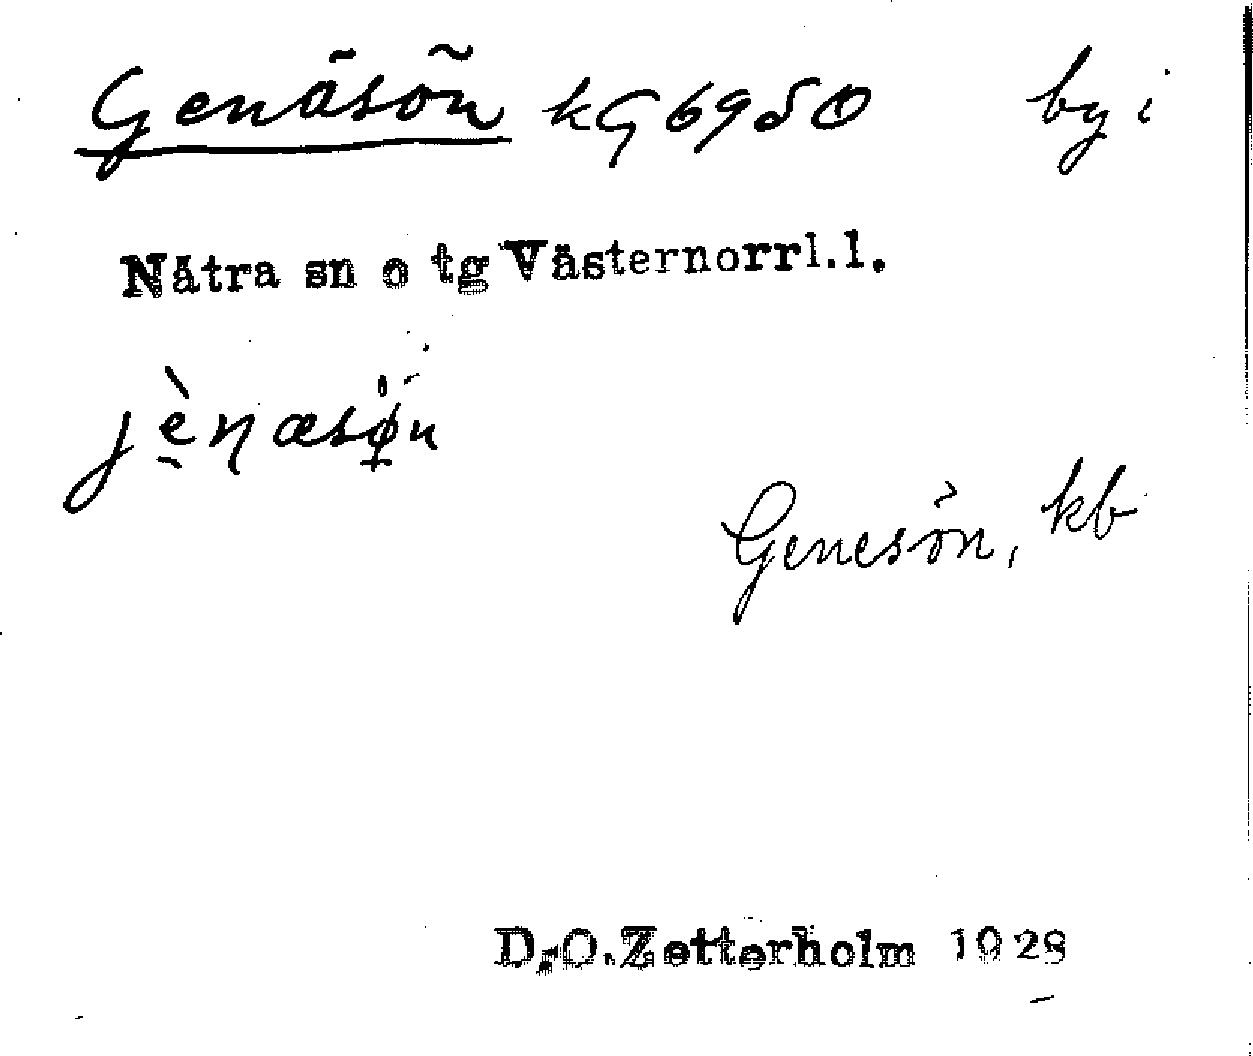 Genäsön kG 6950 by i
Nätra sn o tg Västernorrl.l.
jènæsøn
Genesön, kb
D.O.Zetterholm 1928